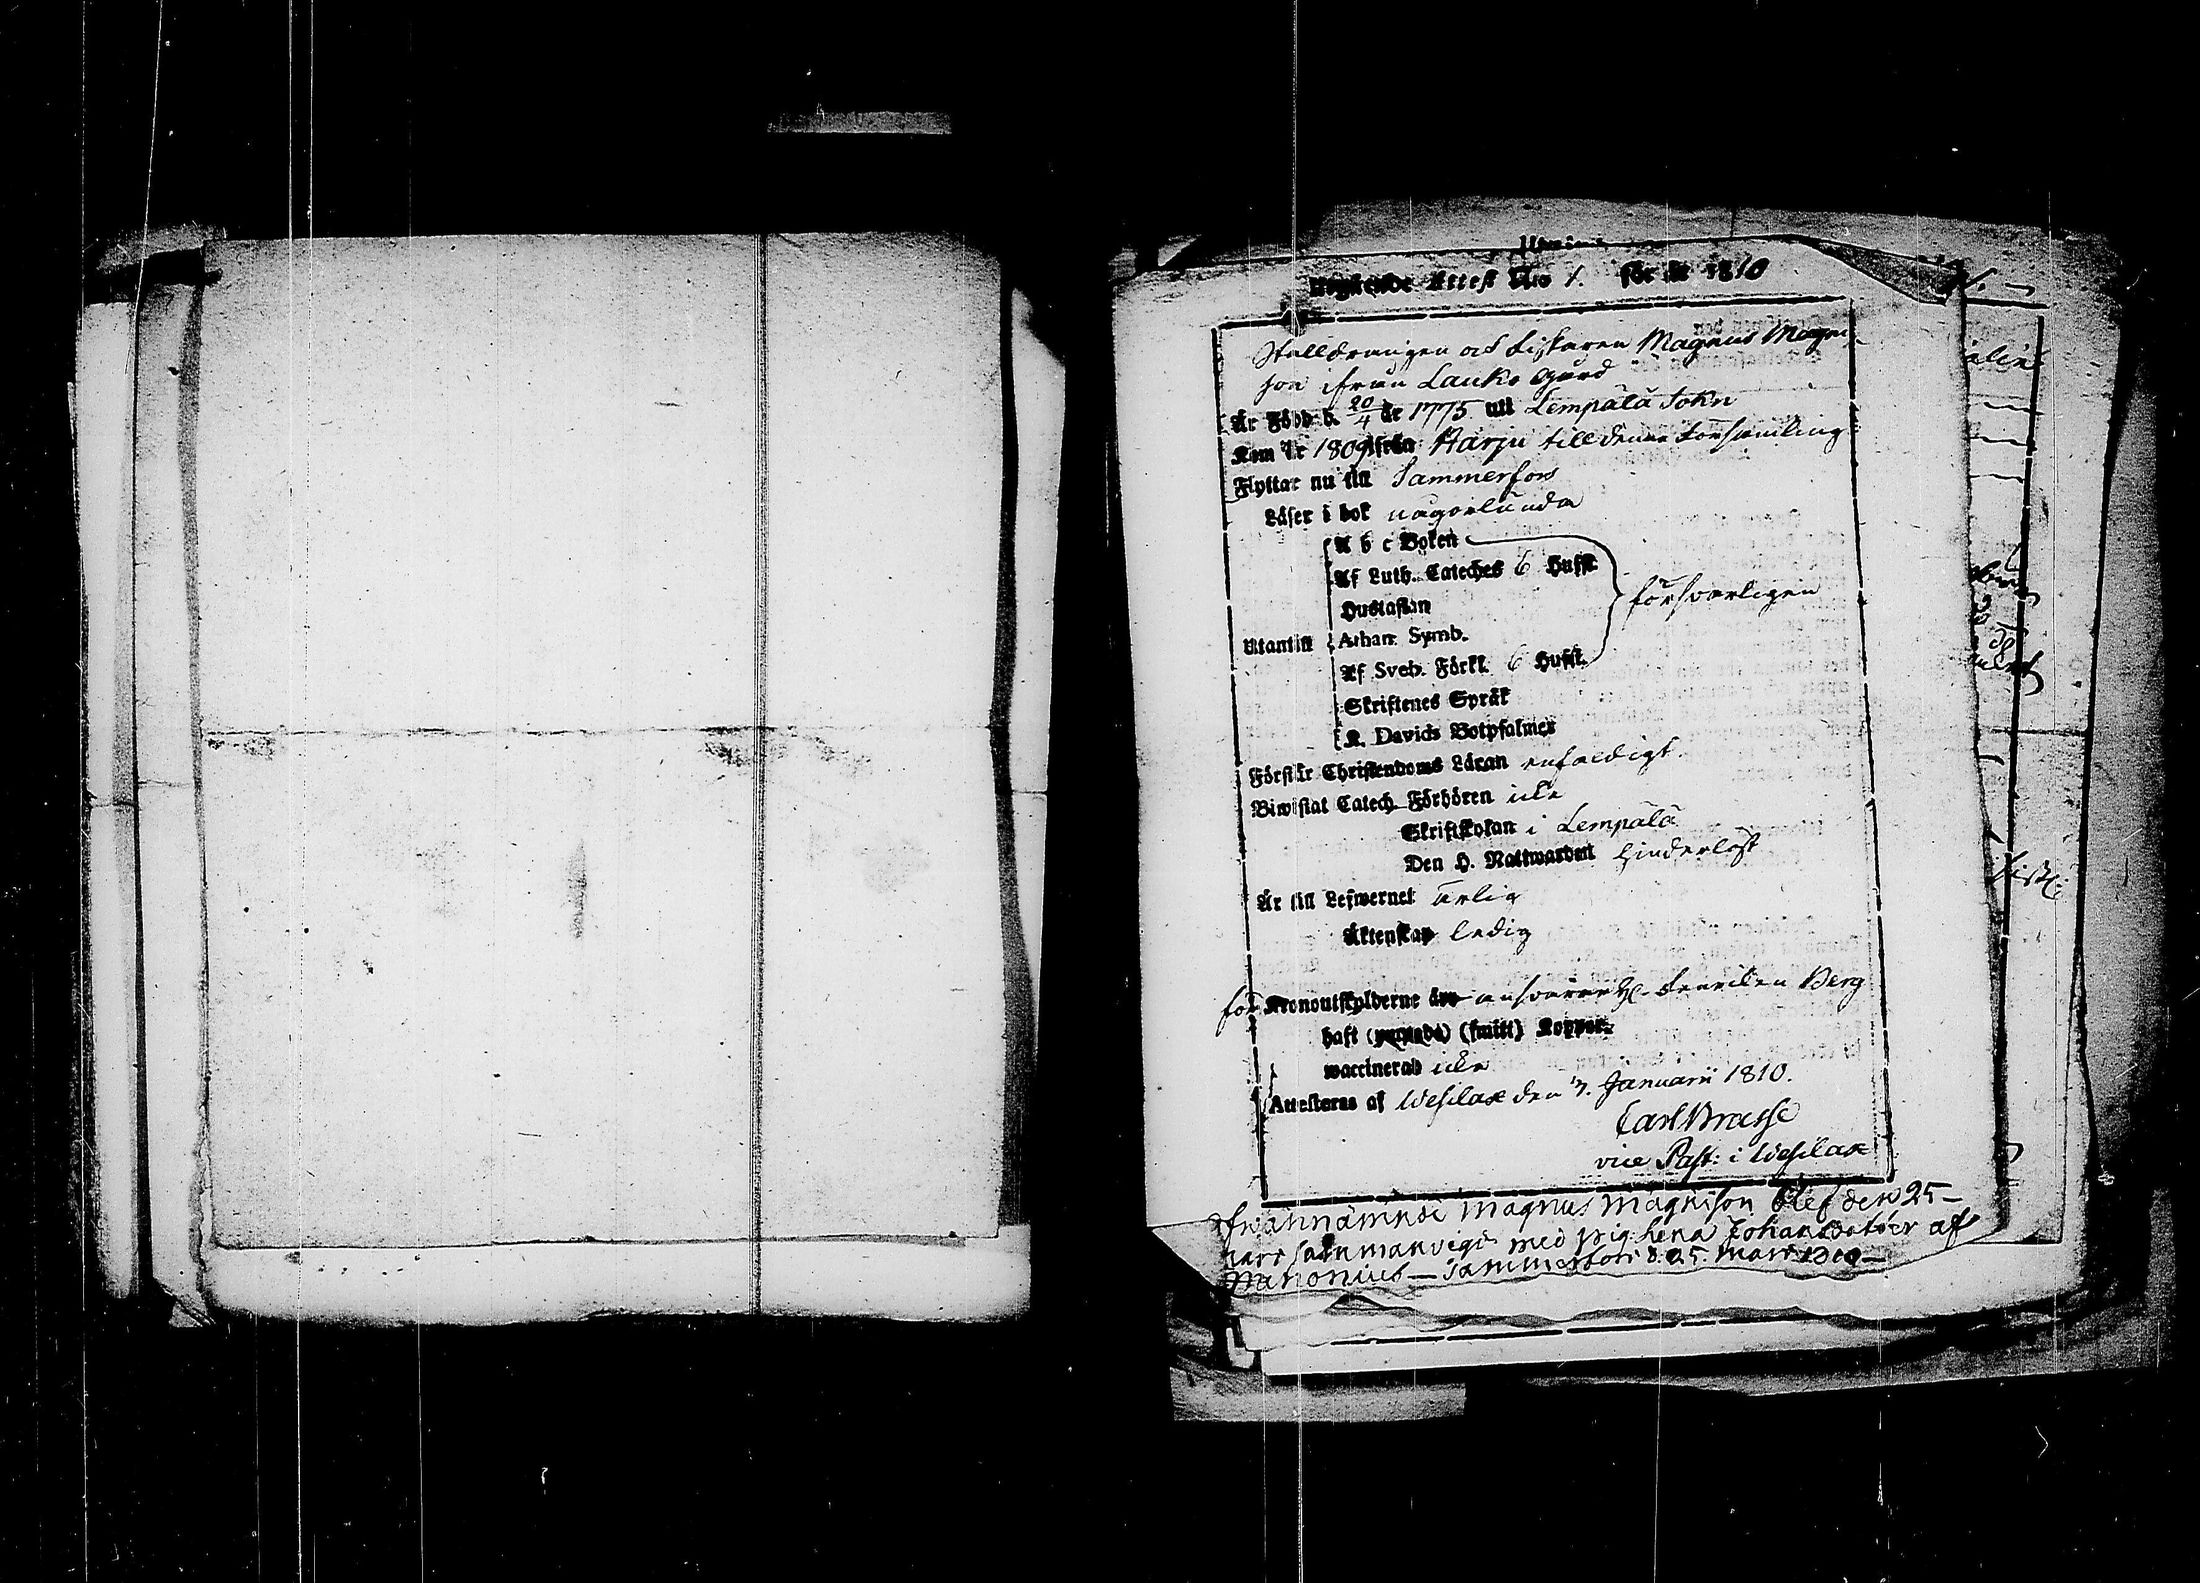 Utgående Attest N:o 1. för år 1810
Stalldrängen och Fiskaren Magnus Magni-
son ifrån Lauko Gård
Är Född d. 20/4 år 1775 till Lempälä Sokn
Kom år 1809 ifrån Harju till denna Församling
Flyttar nu till Tammerfors
Läser i bok någorlunda
A b c Boken
Af Luth. Cateches 6 Hufst.
Hustaflan
försvarligen
Utantill Athan. Symb.
Af Sveb. Förkl. 6 Hufst.
Skriftenes Språk
K. Davids Botpsalmer
Förstår Christendoms Läran enfaldigt.
Biwistat Catech. Förhören icke
Skriftskolan i Lempälä
Den H. Nattwarden hinderlöst
Är till Lefwernet ärlig
Äktenskap ledig
för Kronoutskylderne ansvarar H. Fenriken Berg
haft (smått) Koppor.
waccinerad icke
Attesteras af Wesilax den 7. Januarii 1810.
Carl Brasse
vice Past: i Wesilax
Ofvannämnde Magnus Magnison blef den 25-
mars sammanvegd med pig. Lena Johansdotter af
Tammerfors d. 25. Mars 1810